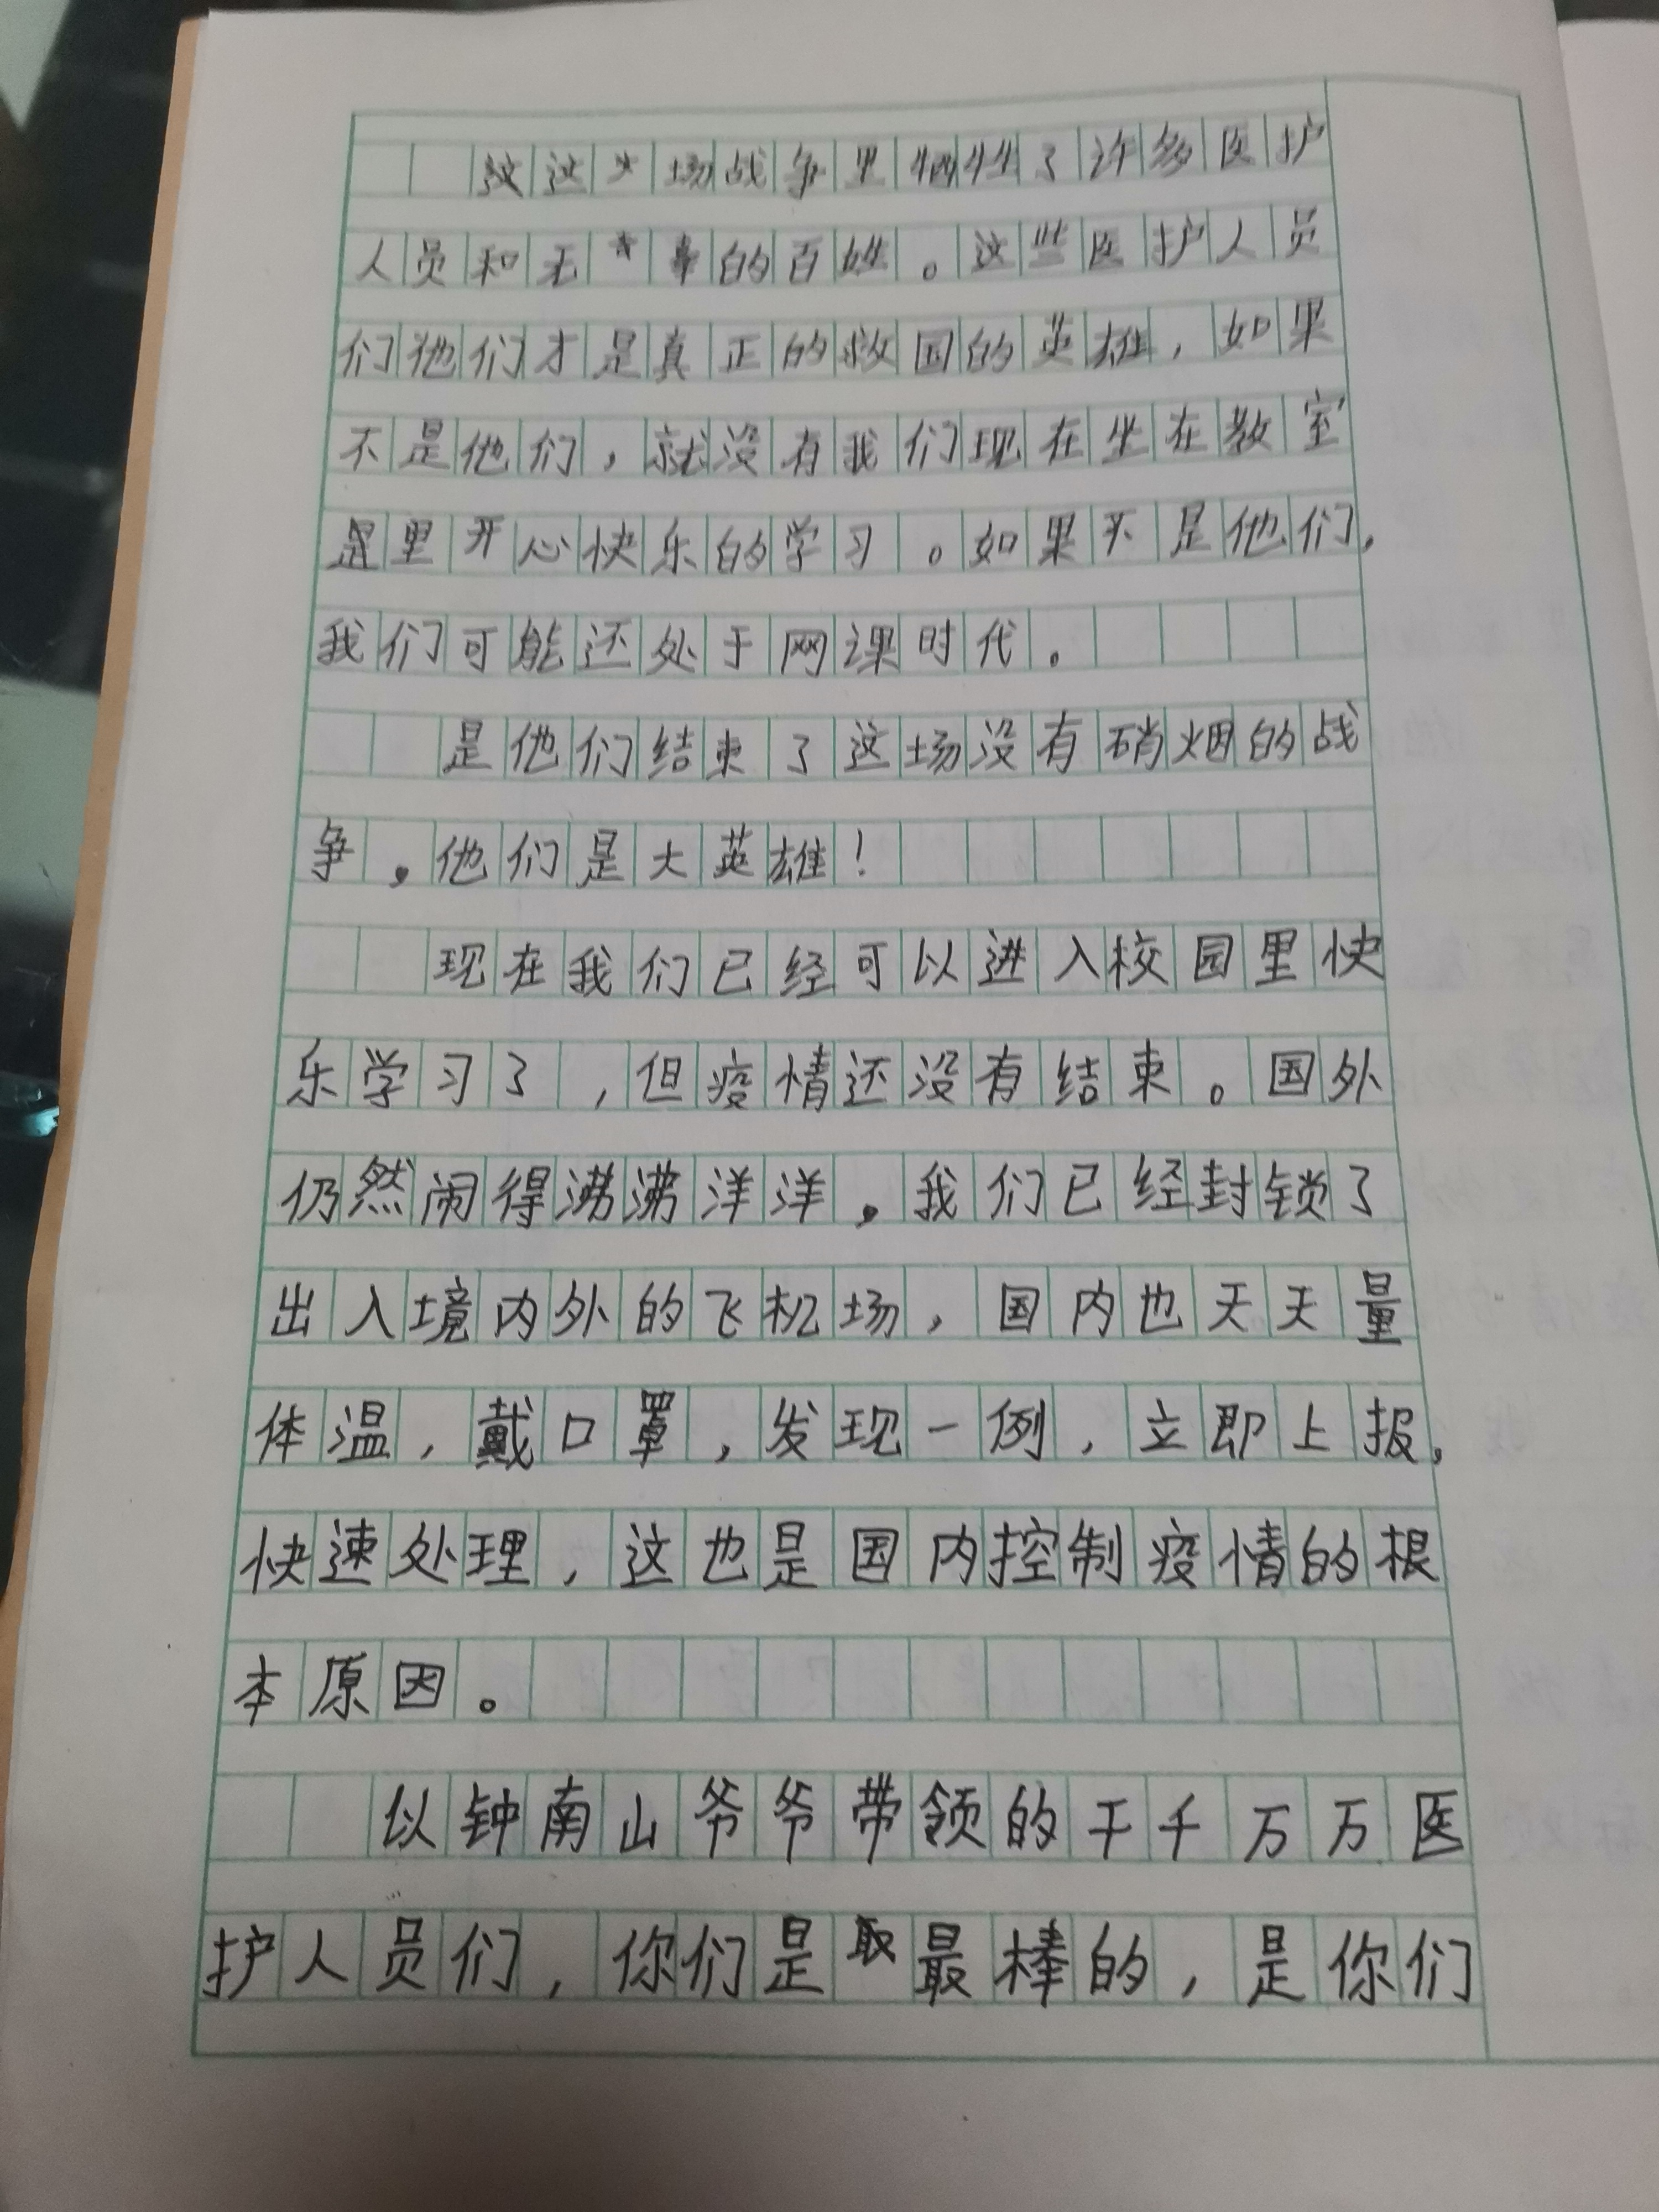 这这场战争里牺牲了许多医护
人员和无的百姓。这些医护人员
们他们才是真正的救国的英雄，如果
不是他们，就没有我们现在坐在教室
是里开心快乐的学习。如果不是他们，
我们可能还处于网课时代。
是他们结束了这场没有硝烟的战
争，他们是大英雄！
现在我们已经可以进入校园里快
乐学习了，但疫情还没有结束。国外
仍然闹得沸沸洋洋，我们已经封锁了
出入境内外的飞机场，国内也天天量
体温，戴口罩，发现一例，立即上报，
快速处理，这也是国内控制疫情的根
本原因。
以钟南山爷爷带领的干千万万医
护人员们，你们是取最棒的，是你们